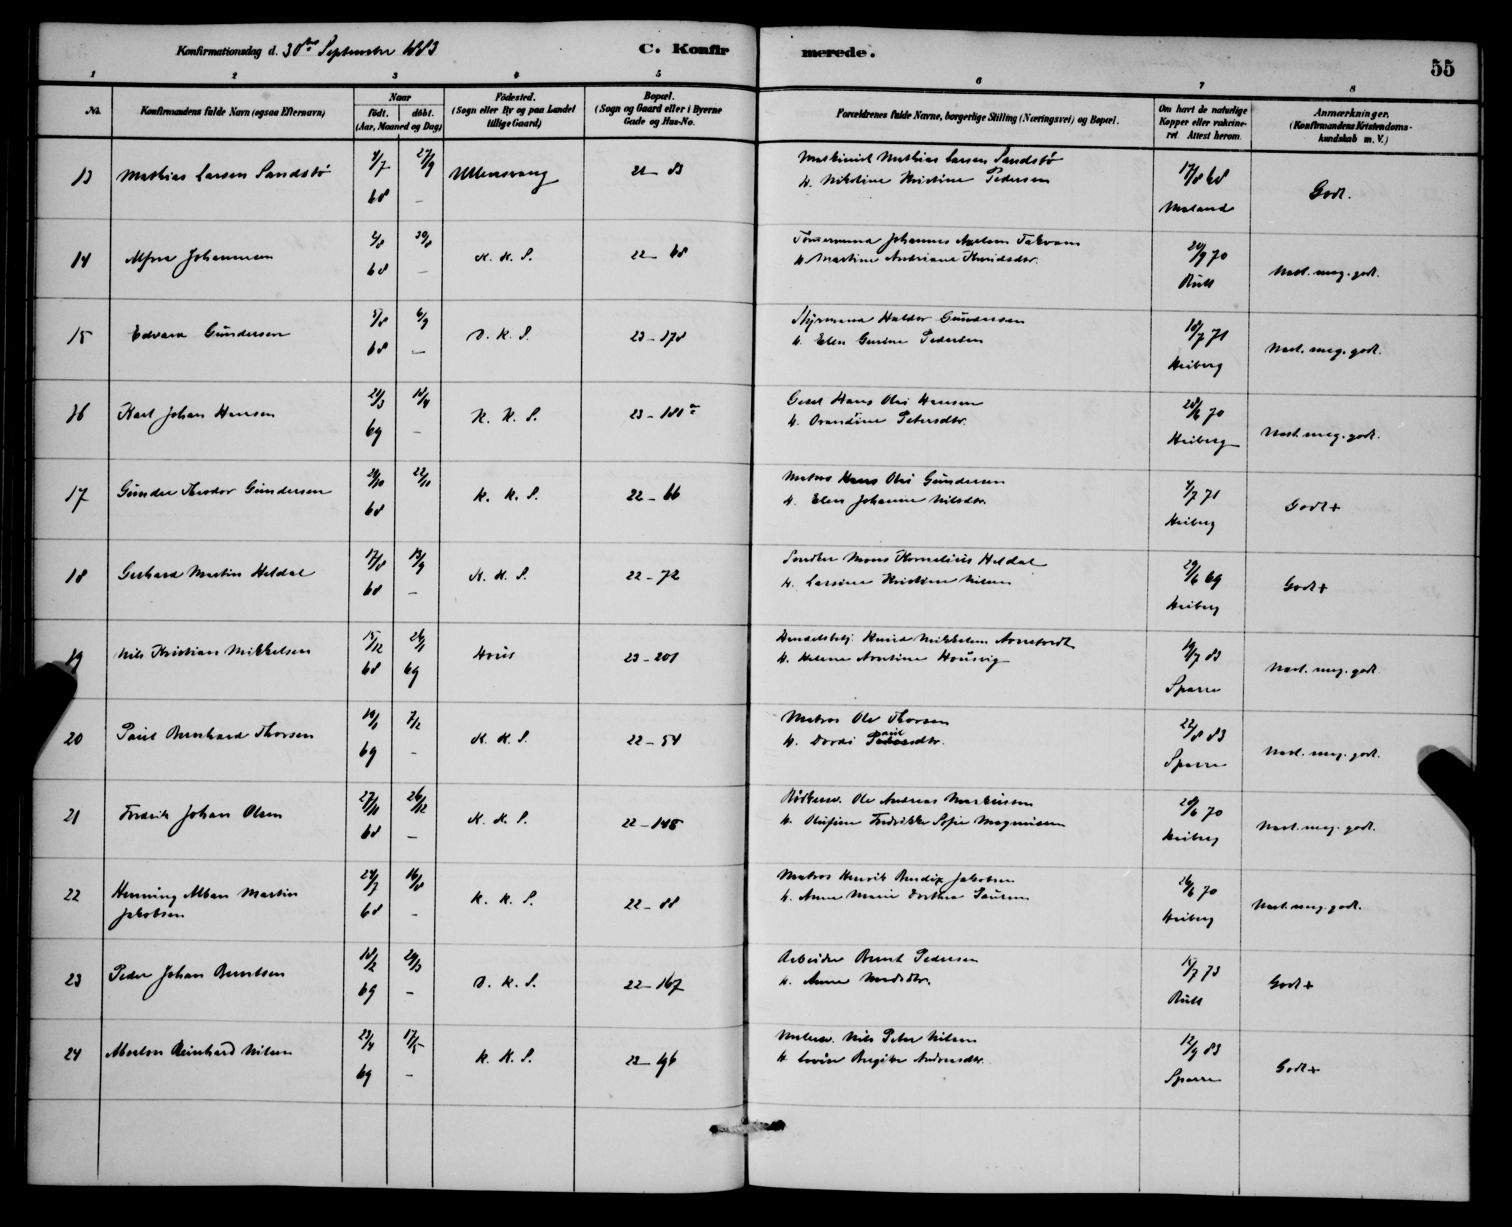 Konfirmationsdag d. 30te September 1883
C. Konfirmerede.
55
1 2 3 4 5 6 7 8
No. Konfirmandens fulde Navn (ogsaa Efternavn)
Naar født. døbt. (Aar, Maaned og Dag)
Fødested. (Sogn eller By og paa Landet tillige Gaard)
Bopæl. (Sogn og Gaard eller i Byerne Gade og Hus-No.
Forældrenes fulde Navne, borgerlige Stilling (Næringsvei) og Bopæl.
Om havt de naturlige Kopper eller vakcineret Attest herom.
Anmærkninger. (Konfirmandens Kristendomskundskab m. V.)
13 Mathias Larsen Sandstø 27/9 Ullensvang 21 - 83 Maskinist Mathias Larsen Sandstø 17/8 68 Godt.
68 - H. Nikoline Kristine Pedersen
14 Johannesen 30/8 K. K. S. 22 - 68 Tømmermand Johannes 20/9 70 Næst. meg. godt.
68 - H. Martine Andriane Knudsdtr. Rull
15 Edvard Gundersen 6/9 D. K. S. 23 - 178 Styrmand Halder Gundersen 18/7 71 Næst. meg. godt.
68 - H. Elen Gurine Pedersen Heiberg
16 Karl Johan Hansen 21/3 18/4 K. K. S. 23 - 181 a Hans Olai Hansen 28/6 70 Næst. meg. godt.
69 - H. Petersdtr. Heiberg
17 Gunder Theodor Gundersen 22/11 K. K. S. 22 - 66 Matros Hans Olai Gundersen 4/7 71 Godt +
68 H. Elen Johanne Nilsdtr. Heiberg
18 Gerhard Martin Heldal 17/8 13/9 K. K. S. 22 - 72 Mons Kornelius Heldal 29/6 69 Godt +
68 - H. Larsine Kristine Nilsen Heiberg
19 Nils Kristian Mikkelsen 15/12 26/1 Hous 23 - 201 Handelsbetj. Knud Mikkelsen 10/7 83 Næst. meg. godt.
68 69 H. Helene Housvig Sparre
20 Paul Bernhard Thorsen 10/1 7/2 K. K. S. 22 - 54 Matros Ole Thorsen 22/8 83 Næst. meg. godt.
69 - H. Dordei Sparre
21 Fredrik Johan Olsen 27/11 26/12 K. K. S. 22 - 148 Ole Andreas Markussen 28/6 70 Næst. meg. godt.
68 - H. Olufine Fredrikke Sofie Magnusen Heiberg
22 Henning Alban Martin 24/7 16/8 K. K. S. 22 - 88 Matros Henrik Bendix Jakobsen 26/6 70 Næst. meg. godt.
Jakobsen 68 - H. Anne Marie Dorthea Heiberg
23 Peder Johan Berntsen 18/2 29/3 D. K. S. 22 - 167 Arbeider Bernt Pedersen 15/7 73 Godt +
69 - H. Anne Rull
24 Reinhard Nilsen 23/4 17/5 K. K. S. 22 - 96 Nils Peter Nilsen 12/9 83 Godt +
69 - H. Lovise Andreasdtr. Sparre